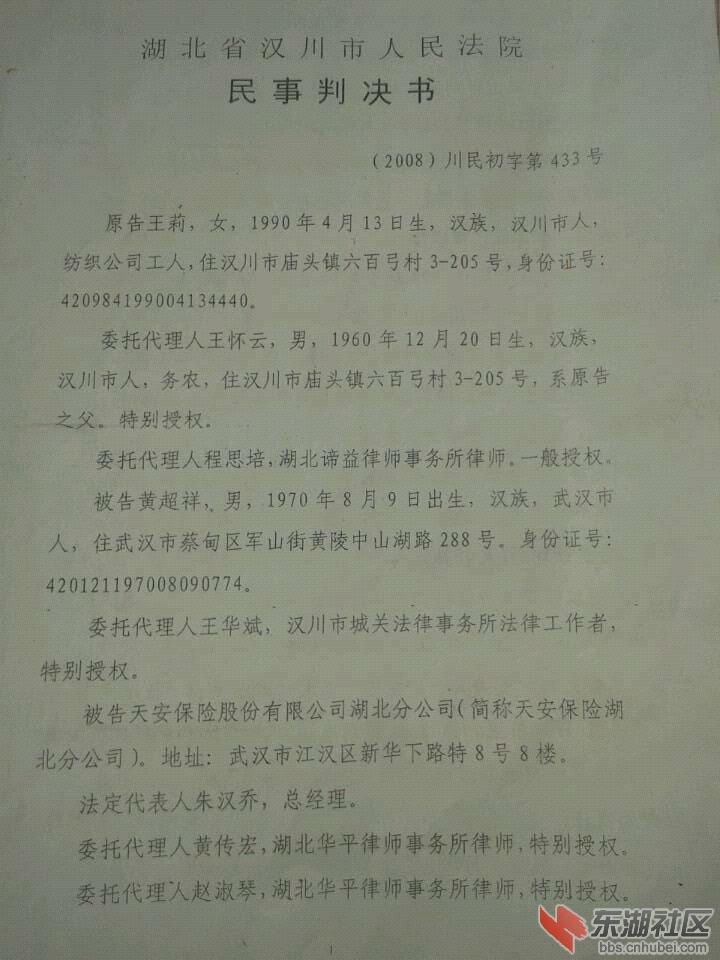 湖北省汉川市人民法院
民事判决书
（2008）川民初字第433号
原告王莉，女，1990年4月13日生，汉族，汉川市人，
纺织公司工人，住汉川市庙头镇六百弓村3-205号，身份证号：
420984199004134440。
委托代理人王怀云，男，1960年12月20日生，汉族，
汉川市人，务农，住汉川市庙头镇六百弓村3-205号，系原告
之父。特别授权。
委托代理人程思培，湖北谛益律师事务所律师。一般授权。
被告黄超祥，男，1970年8月9日出生，汉族，武汉市
人，住武汉市蔡甸区军山街黄陵中山湖路288号。身份证号：
420121197008090774。
委托代理人王华斌，汉川市城关法律事务所法律工作者，
特别授权。
被告天安保险股份有限公司湖北分公司（简称天安保险湖
北分公司）。地址：武汉市江汉区新华下路特8号8楼。
法定代表人朱汉乔，总经理。
委托代理人黄传宏，湖北华平律师事务所律师，特别授权。
委托代理人赵淑琴，湖北华平律师事务所律师，特别授权。
1
东湖社区
bbs.cnhubei.com